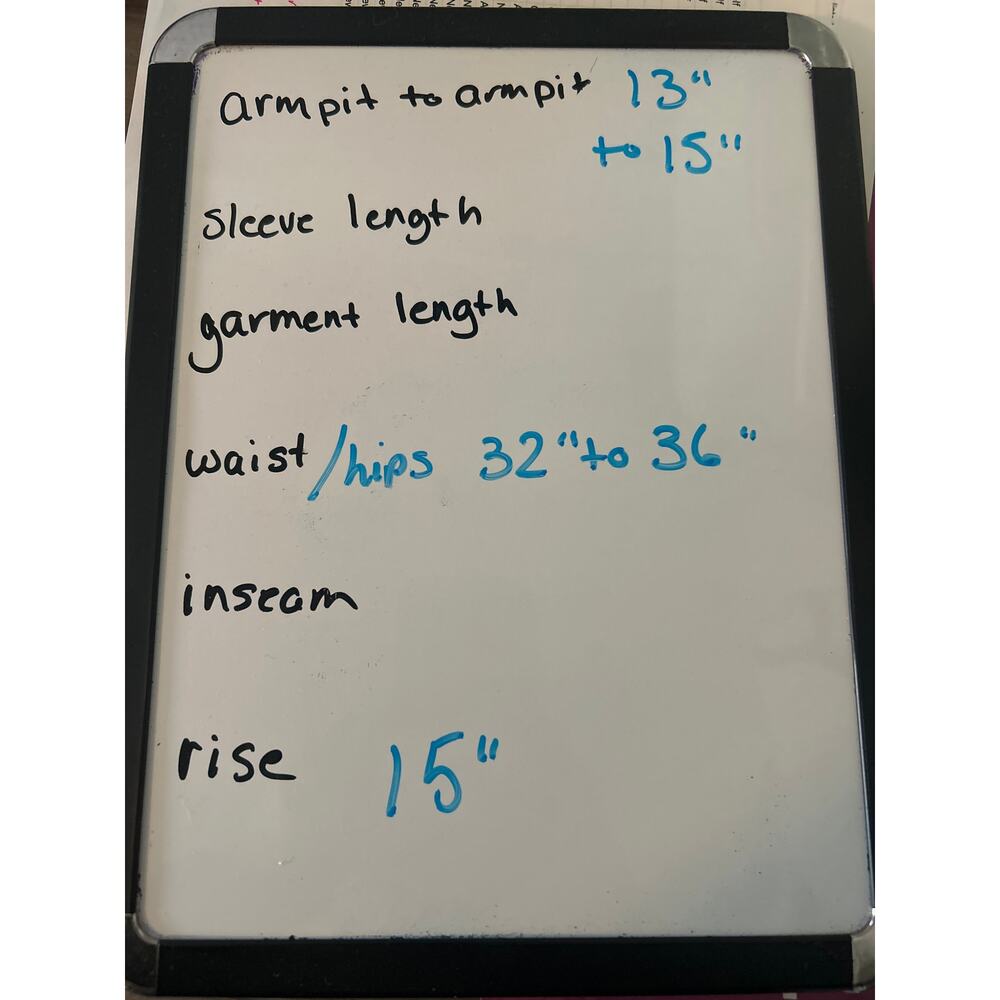 armpit to armpit 13"
to 15"
sleeve length
garment length
waist/hips 32" to 36"
inseam
rise 15"